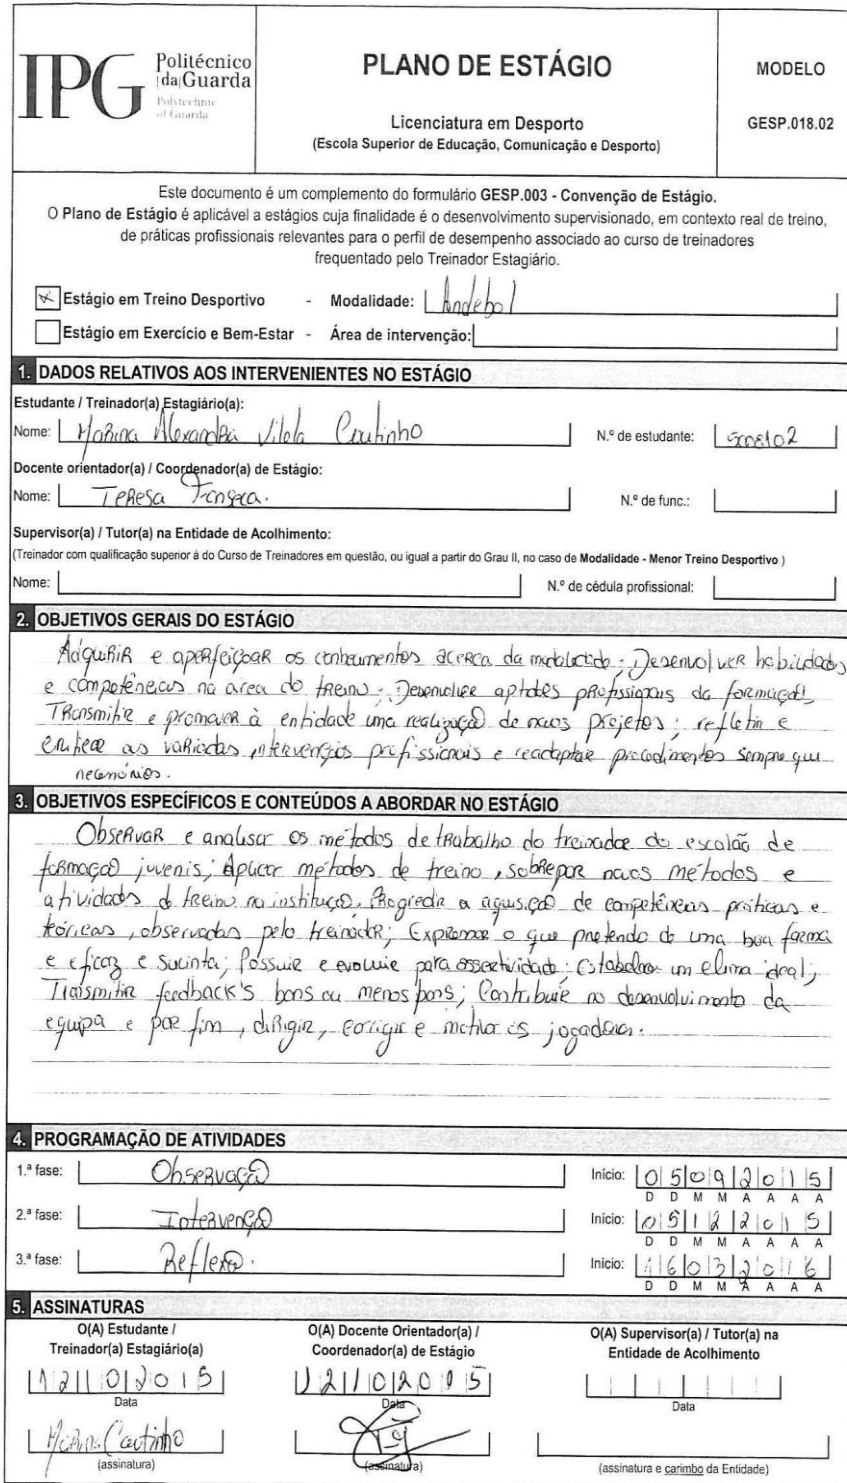 IPG Politécnico
da Guarda
Polytechnic
of Guarda
PLANO DE ESTÁGIO
Licenciatura em Desporto
(Escola Superior de Educação, Comunicação e Desporto)
MODELO
GESP.018.02
Este documento é um complemento do formulário GESP.003 - Convenção de Estágio.
O Plano de Estágio é aplicável a estágios cuja finalidade é o desenvolvimento supervisionado, em contexto real de treino,
de práticas profissionais relevantes para o perfil de desempenho associado ao curso de treinadores
frequentado pelo Treinador Estagiário.
x Estágio em Treino Desportivo - Modalidade: Andebol
Estágio em Exercício e Bem-Estar - Área de intervenção:
1. DADOS RELATIVOS AOS INTERVENIENTES NO ESTÁGIO
Estudante / Treinador(a) Estagiário(a):
Nome: Marina Alexandra Vilela Coutinho N.º de estudante: 5008102
Docente orientador(a) / Coordenador(a) de Estágio:
Nome: Teresa Fonseca. N.º de func.:
Supervisor(a) / Tutor(a) na Entidade de Acolhimento:
(Treinador com qualificação superior à do Curso de Treinadores em questão, ou igual a partir do Grau II, no caso de Modalidade - Menor Treino Desportivo )
Nome: N.º de cédula profissional:
2. OBJETIVOS GERAIS DO ESTÁGIO
Adquirir e aperfeiçoar os conhecimentos acerca da modalidade; Desenvolver habilidades
e competências na area do treino; Desenvolver aptidões profissionais da formação;
Transmitir e promover à entidade uma realização de novos projetos; refletir e
criticar as variadas intervenções profissionais e readaptar procedimentos sempre que
necessários.
3. OBJETIVOS ESPECÍFICOS E CONTEÚDOS A ABORDAR NO ESTÁGIO
Observar e analisar os métodos de trabalho do treinador do escalão de
formação juvenis; Aplicar métodos de treino, sobrepor novos métodos e
atividades de treino na instituição. Progredir a aquisição de competências práticas e
teóricas, observadas pelo treinador; Expressar o que pretendo de uma boa forma
e eficaz e sucinta; Possuir e evoluir para assertividade; Estabelecer um clima ideal;
Transmitir feedback's bons ou menos bons; Contribuir no desenvolvimento da
equipa e por fim, dirigir, corrigir e motivar os jogadores.
4. PROGRAMAÇÃO DE ATIVIDADES
1.ª fase: Observação Início: 05092015
D D M M A A A A
2.ª fase: Intervenção Início: 05122015
D D M M A A A A
3.ª fase: Reflexão. Início: 16032016
D D M M A A A A
5. ASSINATURAS
O(A) Estudante /
Treinador(a) Estagiário(a)
12102015
Data
Marina Coutinho
(assinatura)
O(A) Docente Orientador(a) /
Coordenador(a) de Estágio
12102015
Data
(assinatura)
O(A) Supervisor(a) / Tutor(a) na
Entidade de Acolhimento
Data
(assinatura e carimbo da Entidade)